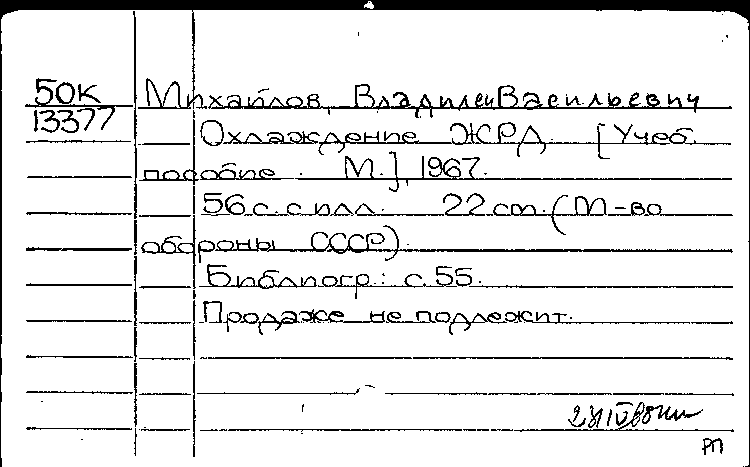 50К Михайлов, Владилен Васильевич
13377 Охлаждение ЖРД. [Учеб.
пособие. М.], 1967.
56 с. с илл. 22 см. (М-во
обороны СССР).
Библиогр.: с. 55.
Продаже не подлежит.
РП